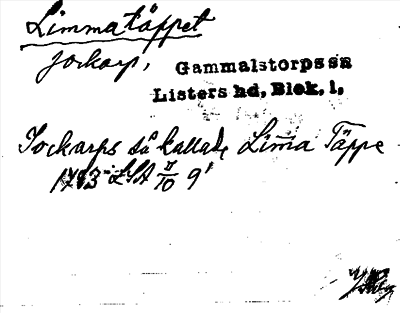 Limmatäppet
Jockarp,
Gammalstorps sn
Listers hd, Blek. l.
Jockarps så kallade Lim̄a Täppe
LSA 11/10 9¹